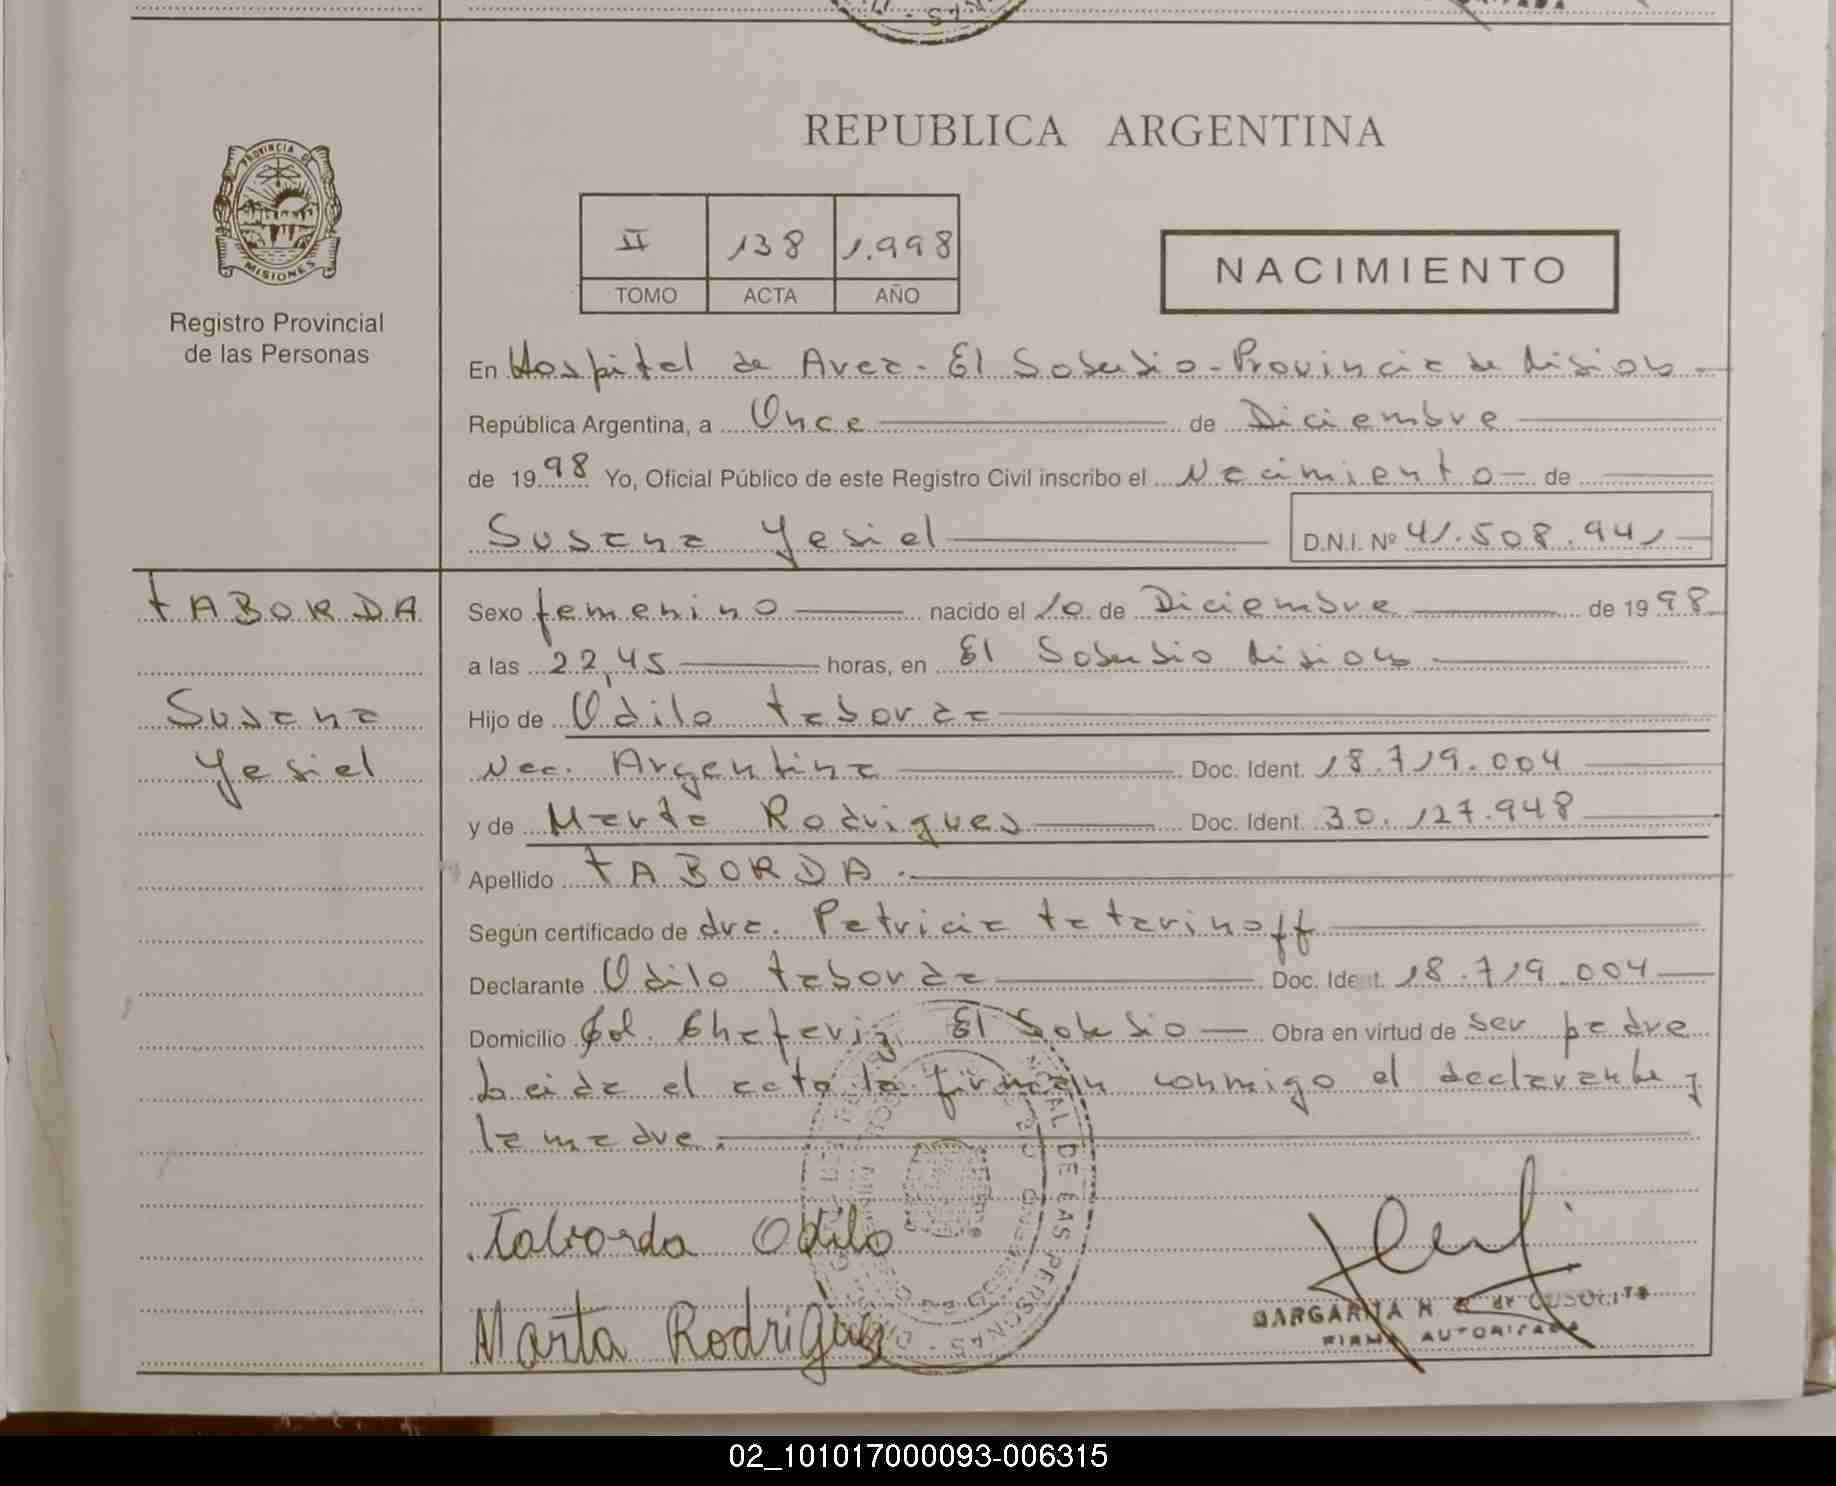 REPUBLICA ARGENTINA
PROVINCIA DE
MISIONES
Registro Provincial
de las Personas
II 138 1.998
TOMO ACTA AÑO
NACIMIENTO
En Hospital de Area - El Soberbio - Provincia de Misiones
República Argentina, a Once de Diciembre
de 1998 Yo, Oficial Público de este Registro Civil inscribo el Nacimiento de
Susana Yesiel D.N.I. Nº 41.508.941
TABORDA
Susana
Yesiel
Sexo femenino nacido el 10 de Diciembre de 1998
a las 22,45 horas, en El Soberbio Misiones
Hijo de Odilo Taborda
Nac. Argentina Doc. Ident. 18.719.004
y de Marta Rodrigues Doc. Ident. 30.127.948
Apellido TABORDA.
Según certificado de dra. Patricia Tatarinoff
Declarante Odilo Taborda Doc. Ident. 18.719.004
Domicilio Col. Chafariz El Soberbio Obra en virtud de ser padre
Leida el acta la firman conmigo el declarante y
la madre.
DE LAS PERSONAS
Taborda Odilo
Marta Rodrigues
MARGARITA H. de
FIRMA AUTORIZADA
02_101017000093-006315